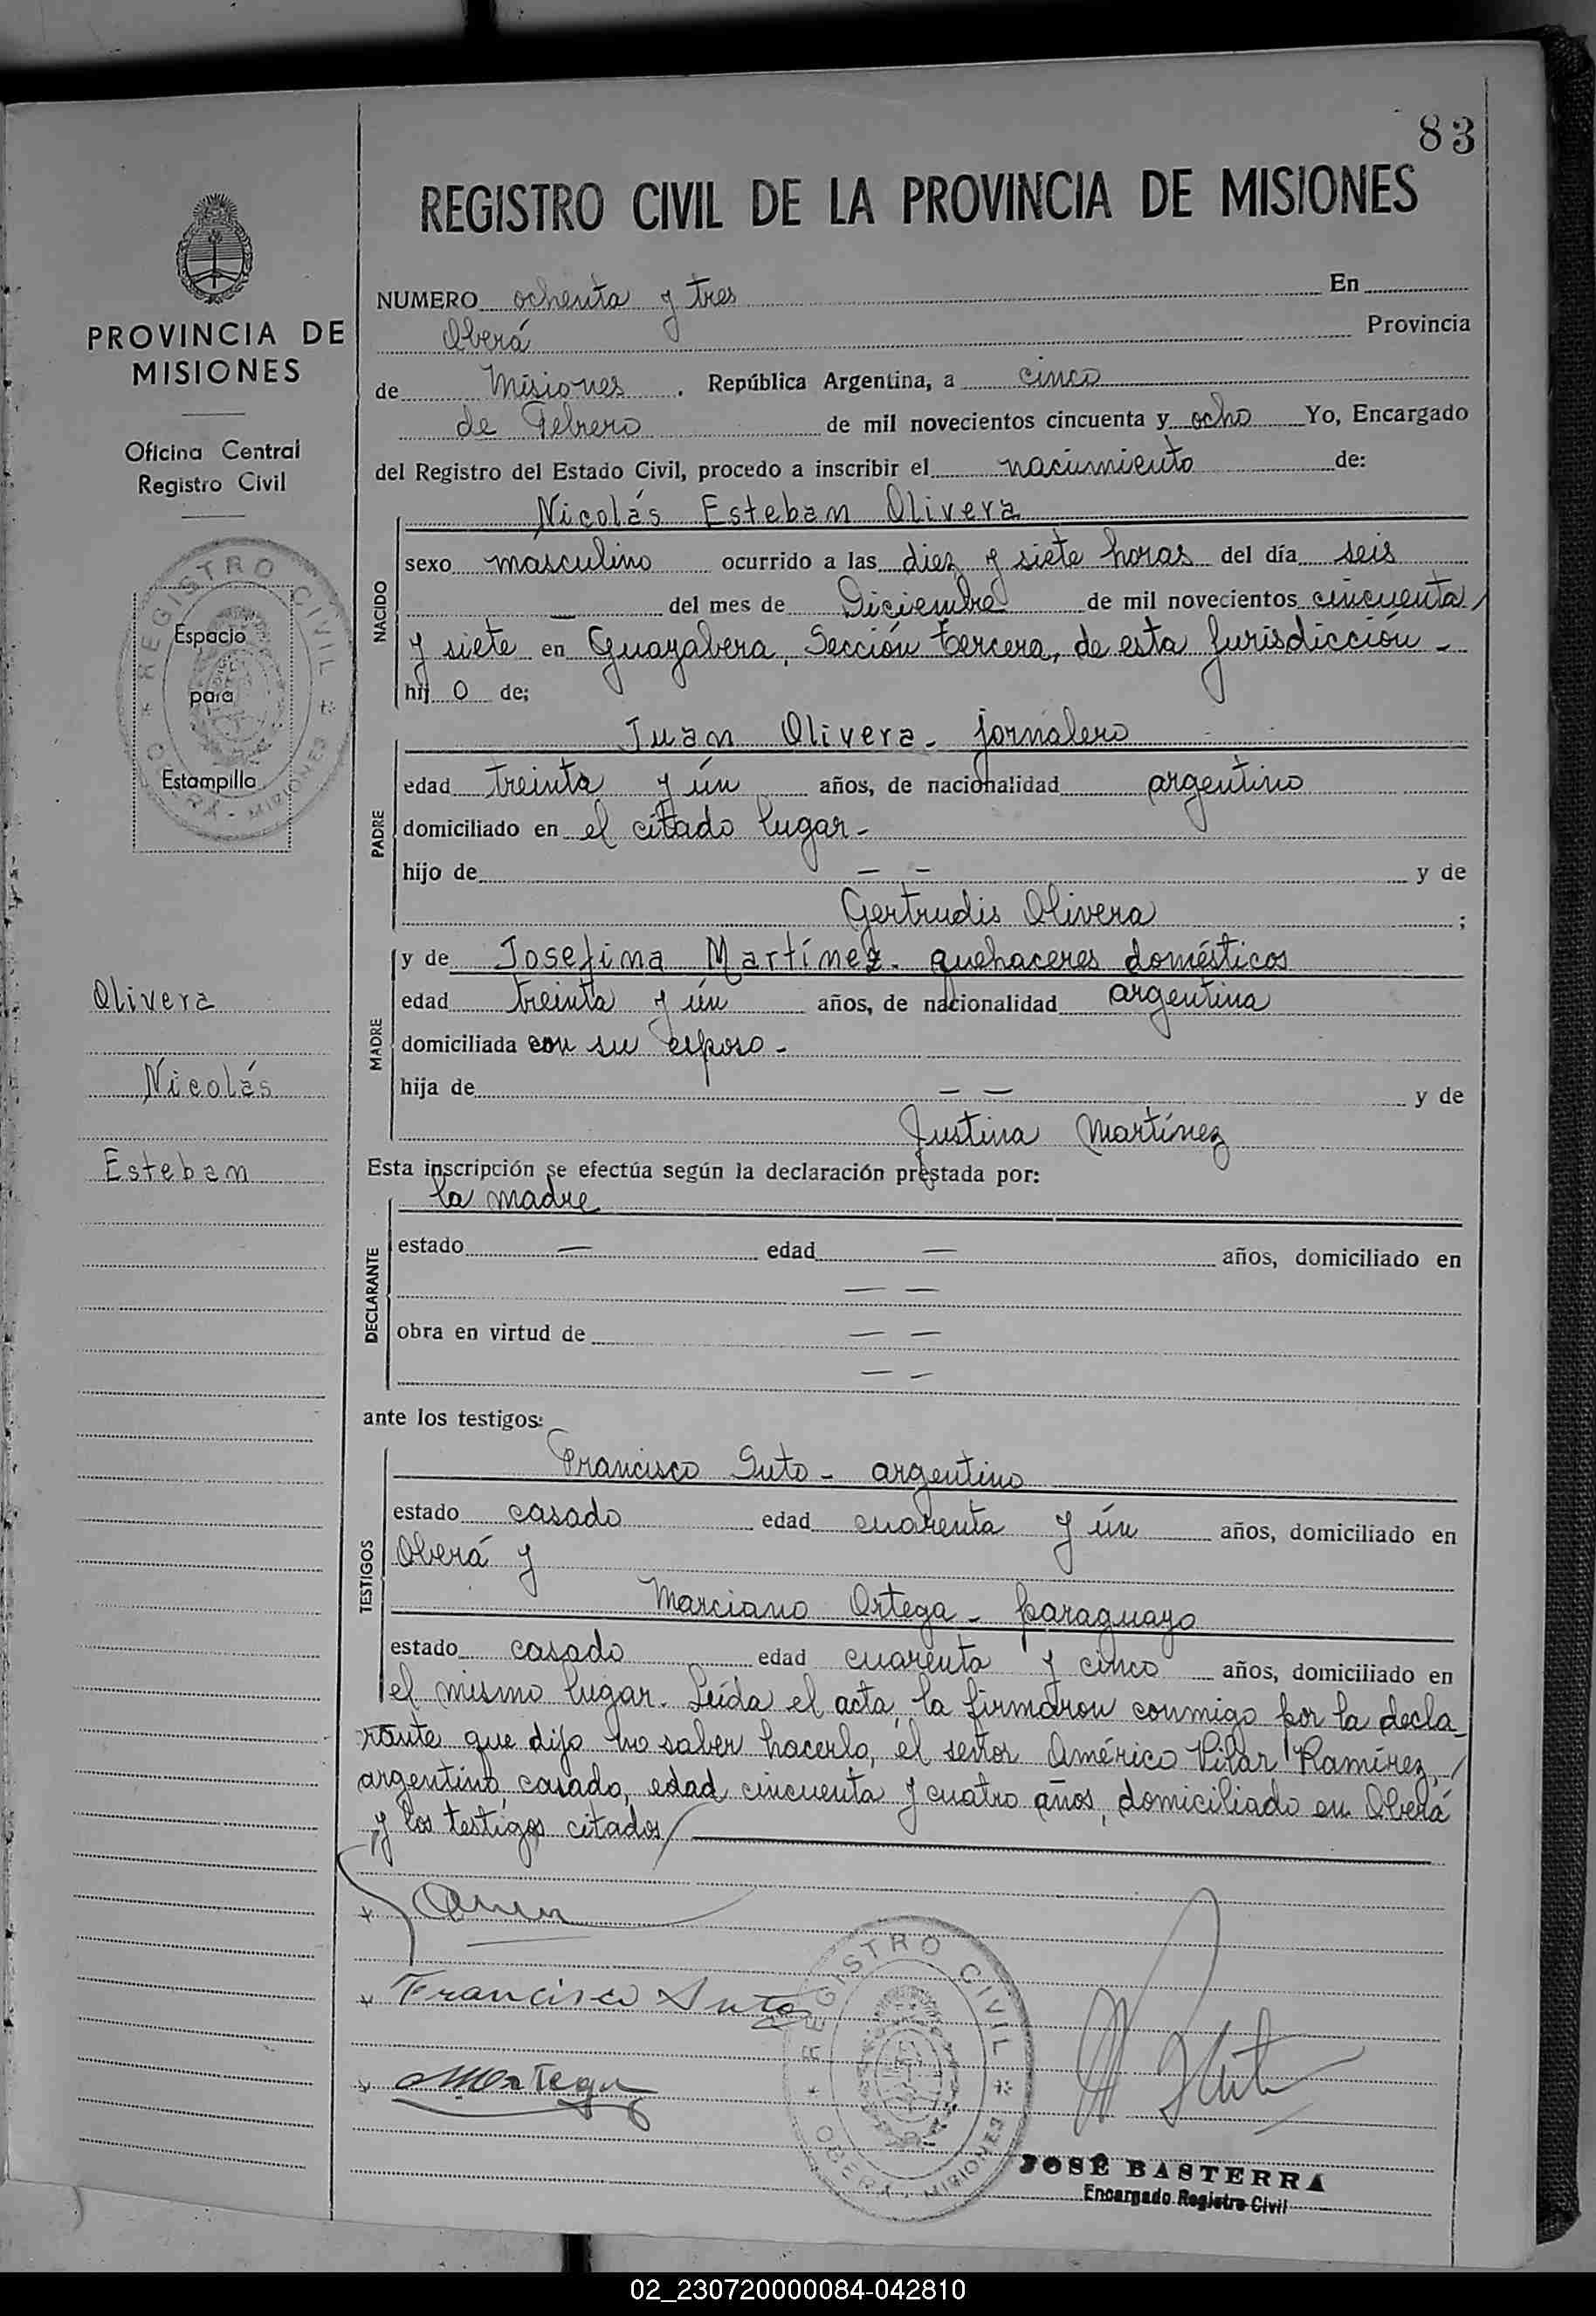 83
REGISTRO CIVIL DE LA PROVINCIA DE MISIONES
PROVINCIA DE
MISIONES
Oficina Central
Registro Civil
REGISTRO CIVIL
OBERÁ - MISIONES
Espacio
para
Estampilla
Olivera
Nicolás
Esteban
NUMERO ochenta y tres En
Oberá Provincia
de Misiones. República Argentina, a cinco
de Febrero de mil novecientos cincuenta y ocho Yo, Encargado
del Registro del Estado Civil, procedo a inscribir el nacimiento de:
NACIDO
Nicolás Esteban Olivera
sexo masculino ocurrido a las diez y siete horas del día seis
— del mes de Diciembre de mil novecientos cincuenta
y siete en Guayabera, Sección tercera, de esta Jurisdicción -
hij o de;
PADRE
Juan Olivera - jornalero
edad treinta y ún años, de nacionalidad argentino
domiciliado en el citado lugar -
hijo de — — y de
Gertrudis Olivera ;
MADRE
y de Josefina Martínez - quehaceres domésticos
edad treinta y ún años, de nacionalidad argentina
domiciliada con su esposo -
hija de — — y de
Justina Martínez
Esta inscripción se efectúa según la declaración prestada por:
DECLARANTE
la madre
estado — edad — años, domiciliado en
— —
obra en virtud de — —
— —
ante los testigos:
TESTIGOS
Francisco Suto - argentino
estado casado edad cuarenta y ún años, domiciliado en
Oberá y
Marciano Ortega - paraguayo
estado casado edad cuarenta y cinco años, domiciliado en
el mismo lugar. Leída el acta, la firmaron conmigo por la decla-
rante que dijo no saber hacerlo, el señor Américo Vilar Ramírez,
argentino, casado, edad cincuenta y cuatro años, domiciliado en Oberá
y los testigos citados
Francisco Suto
MOrtega
REGISTRO CIVIL
OBERÁ - MISIONES
JOSÉ BASTERRA
Encargado Registro Civil
02_230720000084-042810